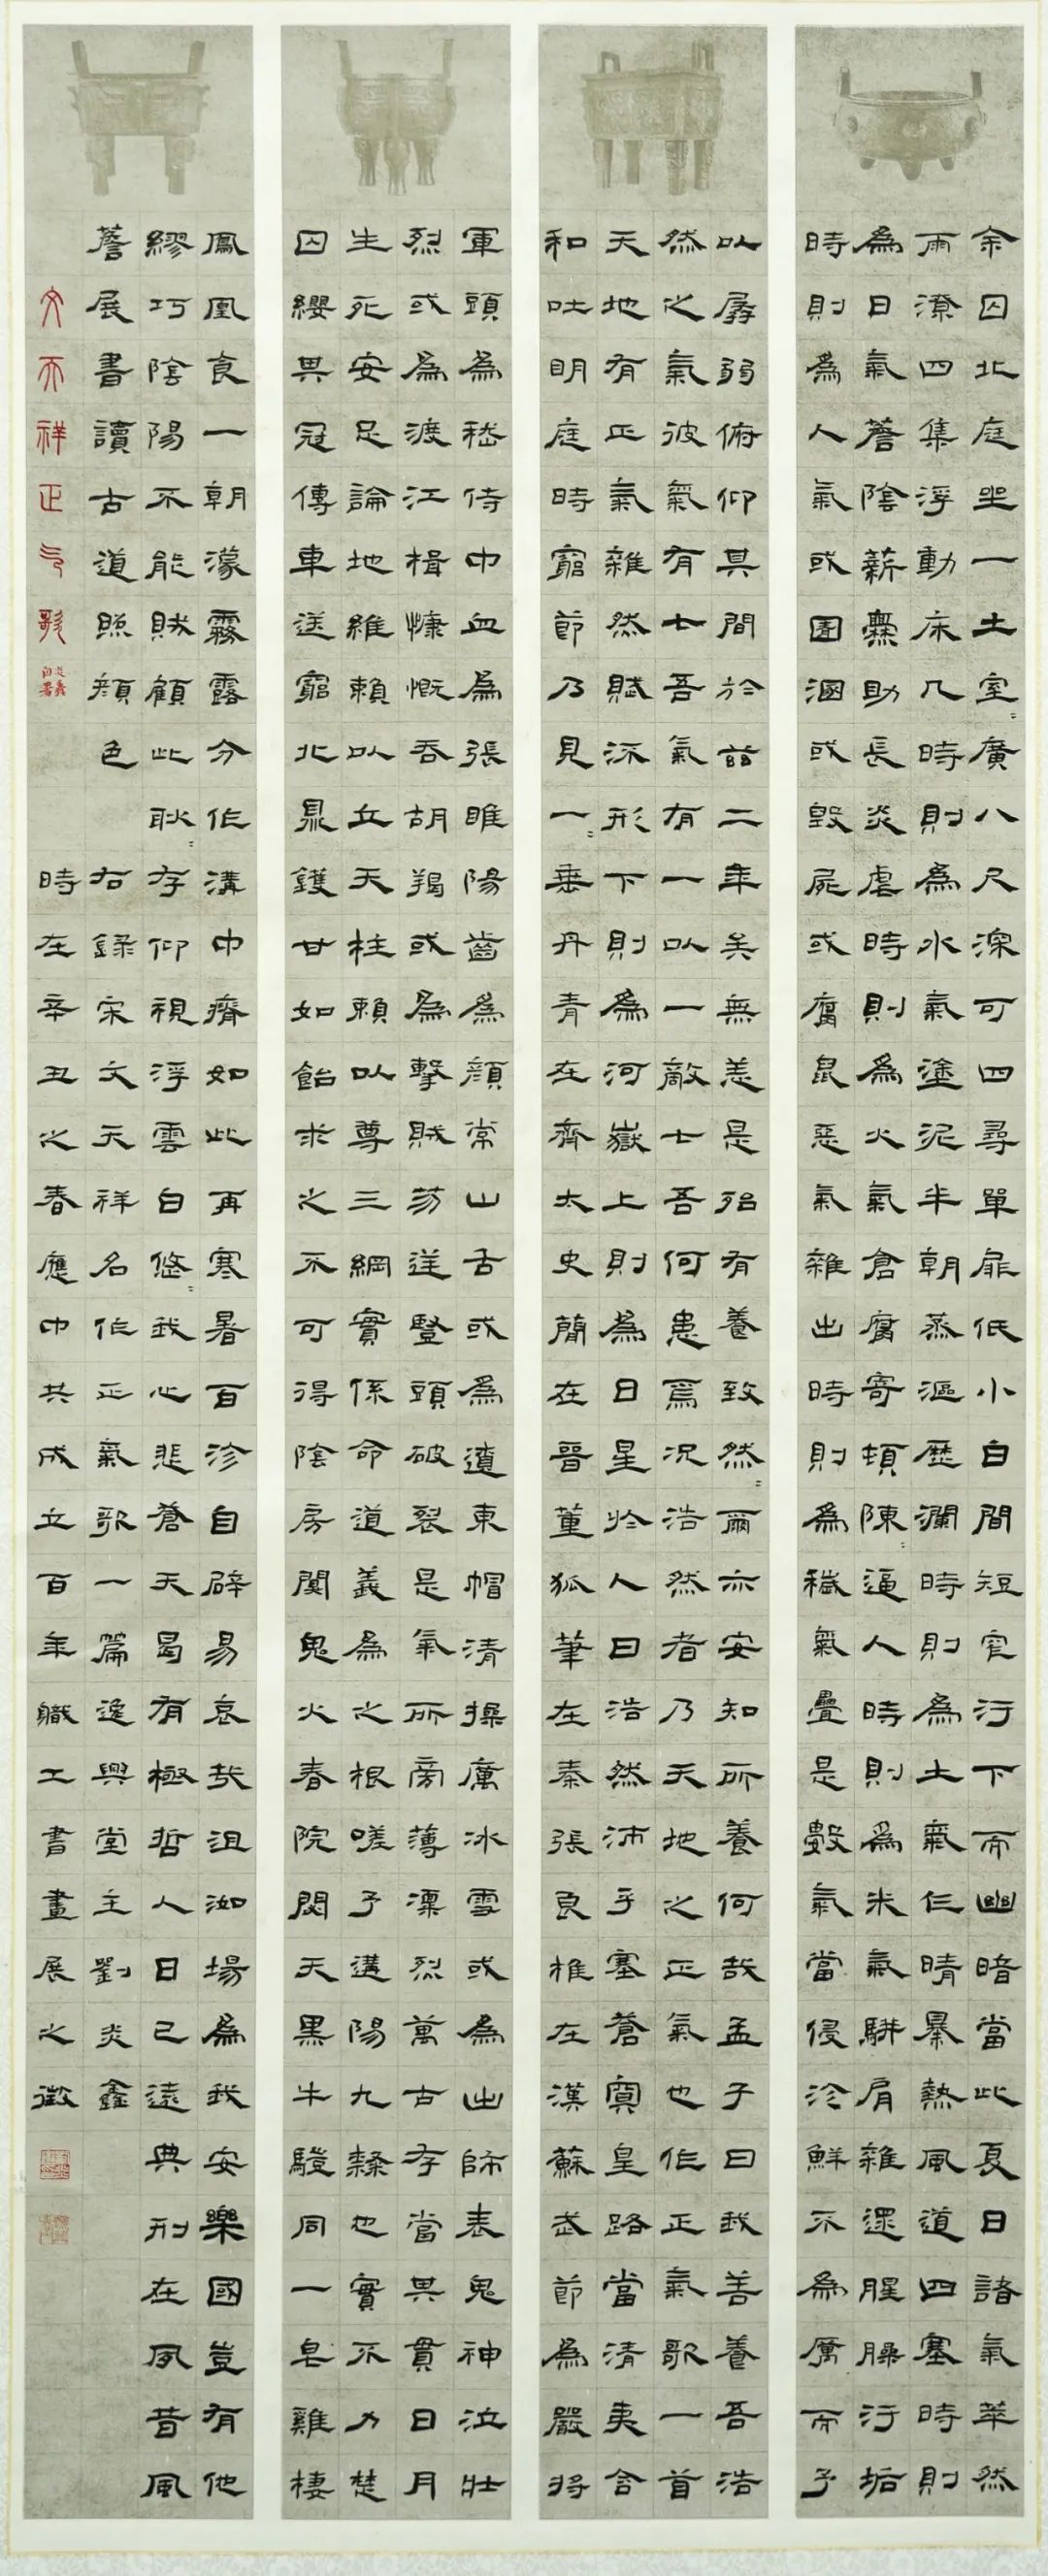 余囚北庭坐一土室〻廣八尺深可四尋單扉低小白間短窄汙下而幽暗當此夏日諸氣萃然
雨潦四集浮動床几時則為水氣塗泥半朝蒸漚歷瀾時則為土氣乍晴暴熱風道四塞時則
為日氣簷陰薪爨助長炎虐時則為火氣倉腐寄頓陳〻逼人時則為米氣駢肩雜遝腥臊汙垢
時則為人氣或圊溷或毀屍或腐鼠惡氣雜出時則為穢氣疊是數氣當侵沴鮮不為厲而予
以孱弱俯仰其間於茲二年矣無恙是殆有養致然〻爾亦安知所養何哉孟子曰我善養吾浩
然之氣彼氣有七吾氣有一以一敵七吾何患焉況浩然者乃天地之正氣也作正氣歌一首
天地有正氣雜然賦流形下則為河嶽上則為日星於人曰浩然沛乎塞蒼冥皇路當清夷含
和吐明庭時窮節乃見一〻垂丹青在齊太史簡在晉董狐筆在秦張良椎在漢蘇武節為嚴將
軍頭為嵇侍中血為張睢陽齒為顏常山舌或為遼東帽清操厲冰雪或為出師表鬼神泣壯
烈或為渡江楫慷慨吞胡羯或為擊賊笏逆豎頭破裂是氣所旁薄凜烈萬古存當其貫日月
生死安足論地維賴以立天柱賴以尊三綱實係命道義為之根嗟予遘陽九隸也實不力楚
囚纓其冠傳車送窮北鼎鑊甘如飴求之不可得陰房闃鬼火春院閟天黑牛驥同一皂雞棲
鳳凰食一朝濛霧露分作溝中瘠如此再寒暑百沴自辟易哀哉沮洳場為我安樂國豈有他
繆巧陰陽不能賊顧此耿〻存仰視浮雲白悠〻我心悲蒼天曷有極哲人日已遠典刑在夙昔風
簷展書讀古道照顏色 右錄宋文天祥名作正氣歌一篇逸興堂主劉炎鑫
文天祥正气歌
時在辛丑之春應中共成立百年職工書畫展之徵